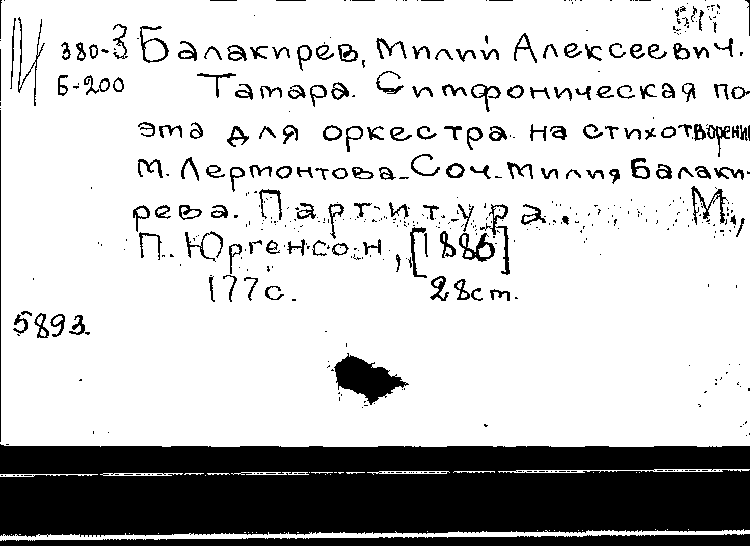 549
380-3 Балакирев, Милий Алексеевич.
Б-200 Тамара. Симфоническая по-
эма для оркестра на стихотворени
М. Лермонтова. Соч. Милия Балаки-
рева. Партитура. М.,
П. Юргенсон, [1886]
177с. 28ст.
5893.